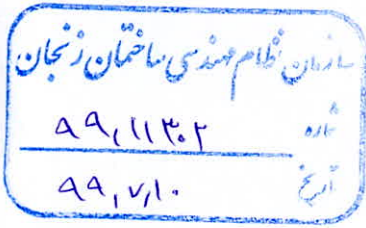 سازمان نظام مهندسی ساختمان زنجان
شماره ۹۹,۱۱۳۰۲
تاریخ ۹۹,۷,۱۰